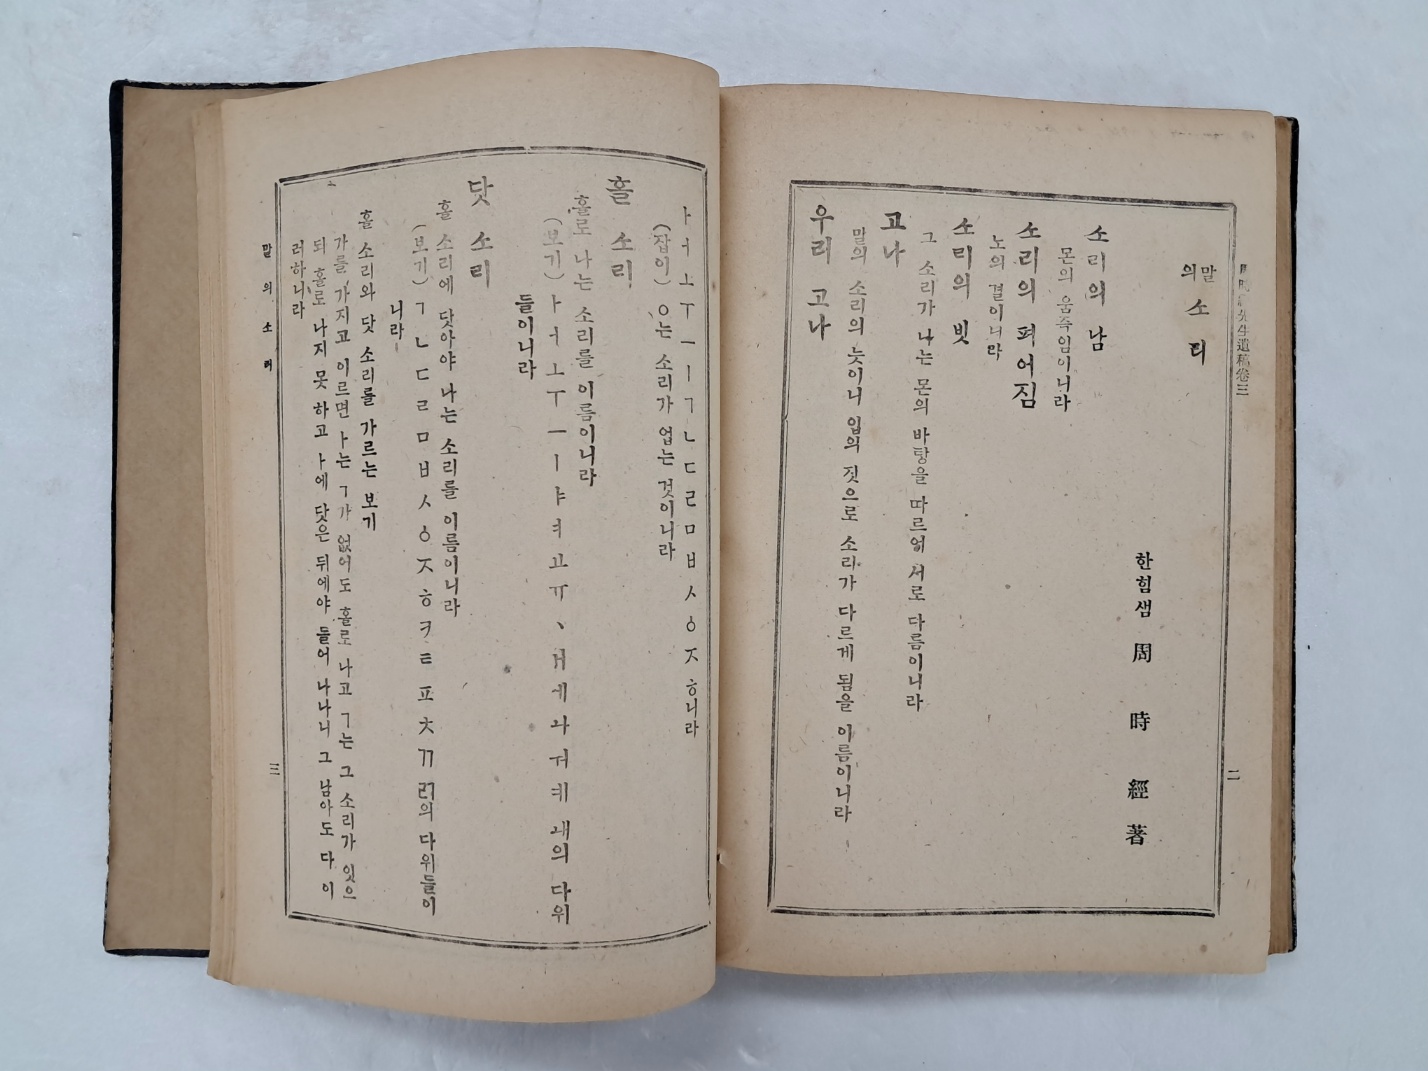 周時經先生遺稿卷三
말의 소리
한힘샘 周時經著
소리의 남
몬의 움즉임이니라
소리의 펴어짐
노의 결이니라
소리의 빗
그 소리가 나는 몬의 바탕을 따르어 서로 다름이니라
고나
말의 소리의 늣이니 입의 짓으로 소리가 다르게 됨을 이름이니라
우리 고나
二
ㅏㅓㅗㅜㅡㅣㄱㄴㄷㄹㅁㅂㅅㆁㅈㅎ니라
(잡이) ㅇ는 소리가 업는 것이니라
홀 소리
홀로 나는 소리를 이름이니라
(보기) ㅏㅓㅗㅜㅡㅣㅑㅕㅛㅠㆍㅐㅔㅘㅝㅞㅙ의 다위
들이니라
닷 소리
홀 소리에 닷아야 나는 소리를 이름이니라
(보기) ㄱㄴㄷㄹㅁㅂㅅㆁㅈㅎㅋㅌㅍㅊㄲㄺ의 다위들이
니라
홀 소리와 닷 소리를 가르는 보기
가를 가지고 이르면 ㅏ는 ㄱ가 없어도 홀로 나고 ㄱ는 그 소리가 잇으
되 홀로 나지 못 하고 ㅏ에 닷은 뒤에야 들어 나나니 그 남아도 다 이
러하니라
말의소리
三